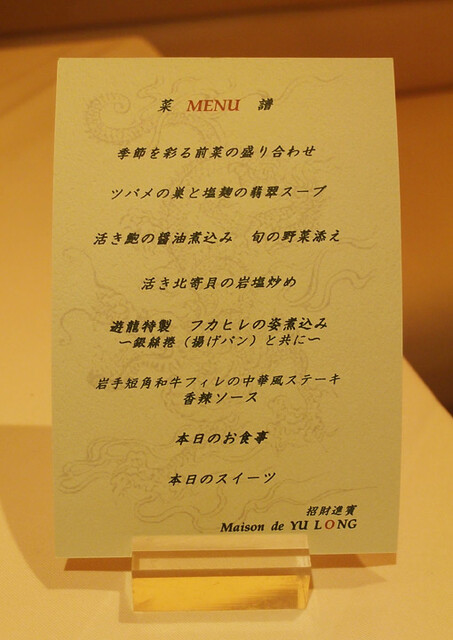 菜 MENU 譜
季節を彩る前菜の盛り合わせ
ツバメの巣と塩麹の翡翠スープ
活き鮑の醤油煮込み 旬の野菜添え
活き北寄貝の岩塩炒め
遊龍特製 フカヒレの姿煮込み
〜銀絲捲（揚げパン）と共に〜
岩手短角和牛フィレの中華風ステーキ
香辣ソース
本日のお食事
本日のスイーツ
招財進賓
Maison de YU LONG